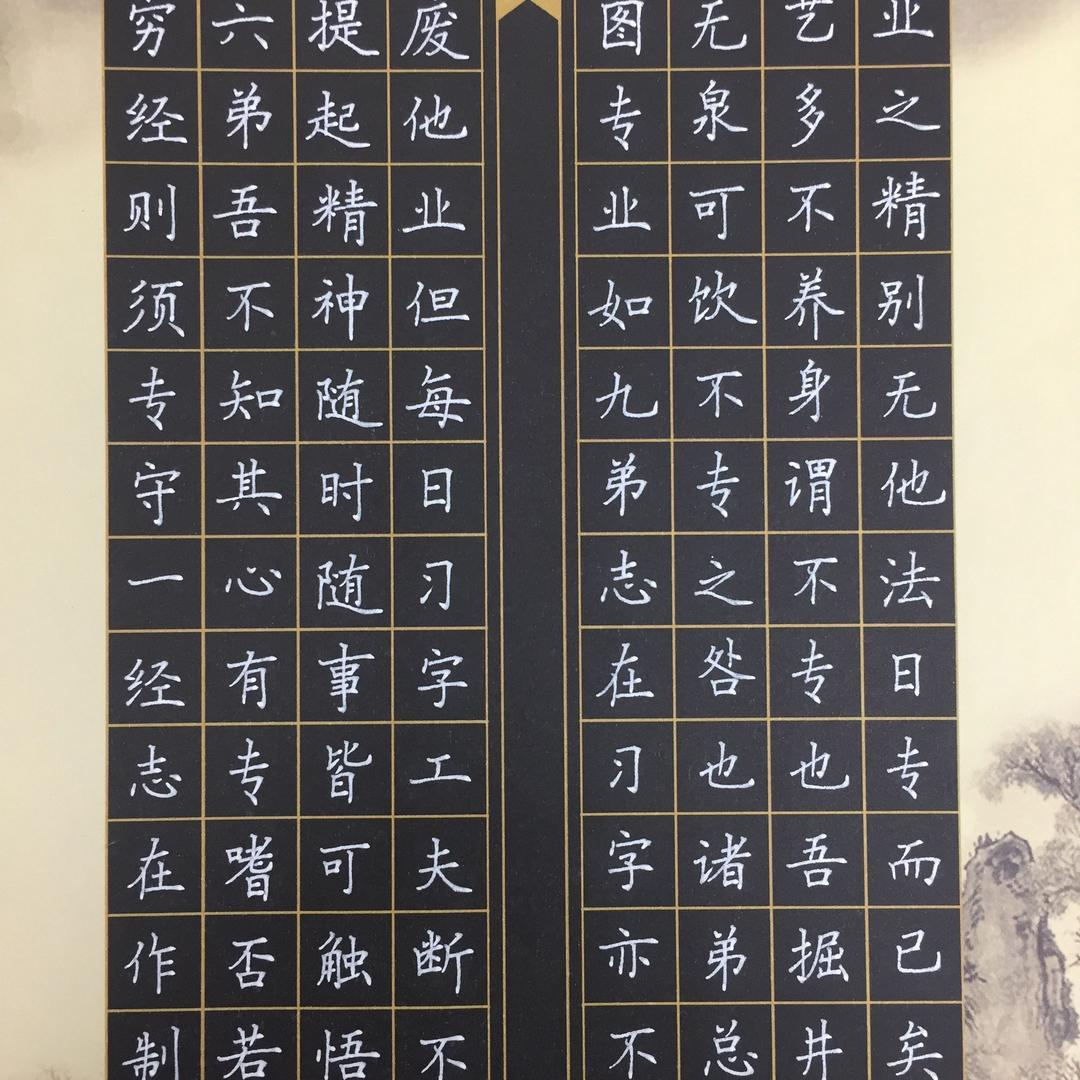 业之精别无他法日专而已矣
艺多不养身谓不专也吾掘井
无泉可饮不专之咎也诸弟总
图专业如九弟志在习字亦不
废他业但每日习字工夫断不
提起精神随时随事皆可触悟
六弟吾不知其心有专嗜否若
穷经则须专守一经志在作制